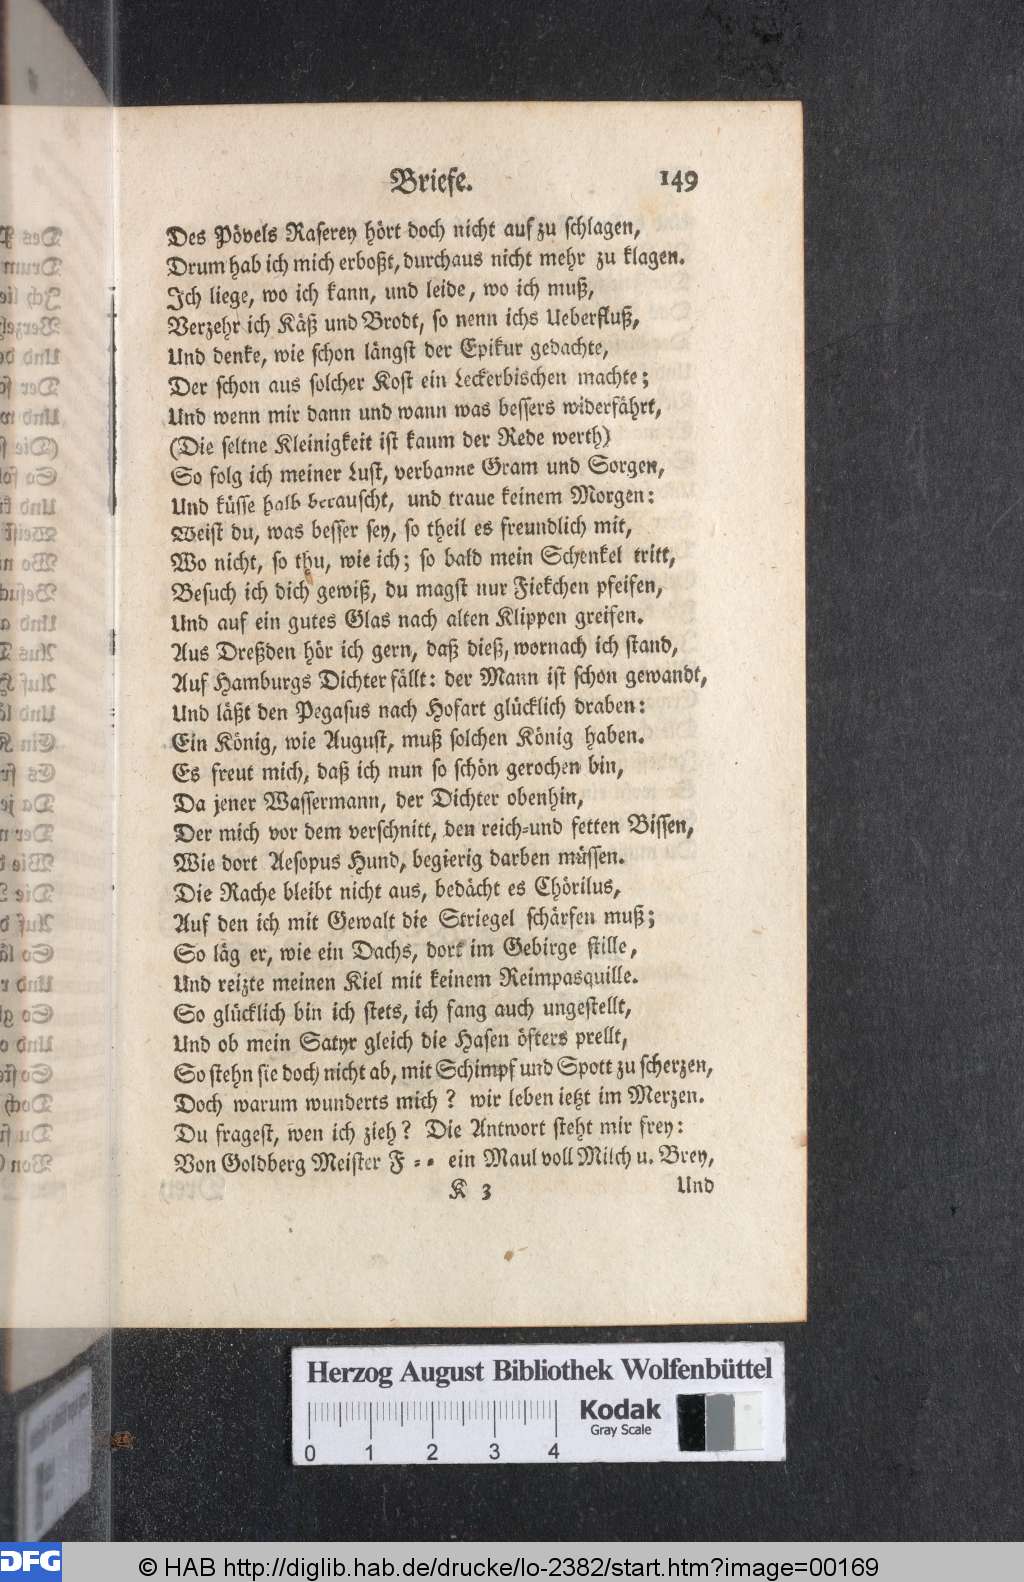 Briefe. 149
Des Pövels Raserey hört doch nicht auf zu schlagen,
Drum hab ich mich erboßt, durchaus nicht mehr zu klagen.
Ich liege, wo ich kann, und leide, wo ich muß,
Verzehr ich Käß und Brodt, so nenn ichs Ueberfluß,
Und denke, wie schon längst der Epikur gedachte,
Der schon aus solcher Kost ein Leckerbischen machte;
Und wenn mir dann und wann was bessers widerfährt,
(Die seltne Kleinigkeit ist kaum der Rede werth)
So folg ich meiner Lust, verbanne Gram und Sorgen,
Und küsse halb berauscht, und traue keinem Morgen:
Weist du, was besser sey, so theil es freundlich mit,
Wo nicht, so thu, wie ich; so bald mein Schenkel tritt,
Besuch ich dich gewiß, du magst nur Fiekchen pfeifen,
Und auf ein gutes Glas nach alten Klippen greifen.
Aus Dreßden hör ich gern, daß dieß, wornach ich stand,
Auf Hamburgs Dichter fällt: der Mann ist schon gewandt,
Und läßt den Pegasus nach Hofart glücklich draben:
Ein König, wie August, muß solchen König haben.
Es freut mich, daß ich nun so schön gerochen bin,
Da jener Wassermann, der Dichter obenhin,
Der mich vor dem verschnitt, den reich-und fetten Bissen,
Wie dort Aesopus Hund, begierig darben müssen.
Die Rache bleibt nicht aus, bedächt es Chörilus,
Auf den ich mit Gewalt die Striegel schärfen muß;
So läg er, wie ein Dachs, dort im Gebirge stille,
Und reizte meinen Kiel mit keinem Reimpasquille.
So glücklich bin ich stets, ich fang auch ungestellt,
Und ob mein Satyr gleich die Hasen öfters prellt,
So stehn sie doch nicht ab, mit Schimpf und Spott zu scherzen,
Doch warum wunderts mich? wir leben ietzt im Merzen.
Du fragest, wen ich zieh? Die Antwort steht mir frey:
Von Goldberg Meister F - - ein Maul voll Milch u. Brey,
K 3 Und
Herzog August Bibliothek Wolfenbüttel
Kodak
Gray Scale
0 1 2 3 4
DFG © HAB http://diglib.hab.de/drucke/lo-2382/start.htm?image=00169